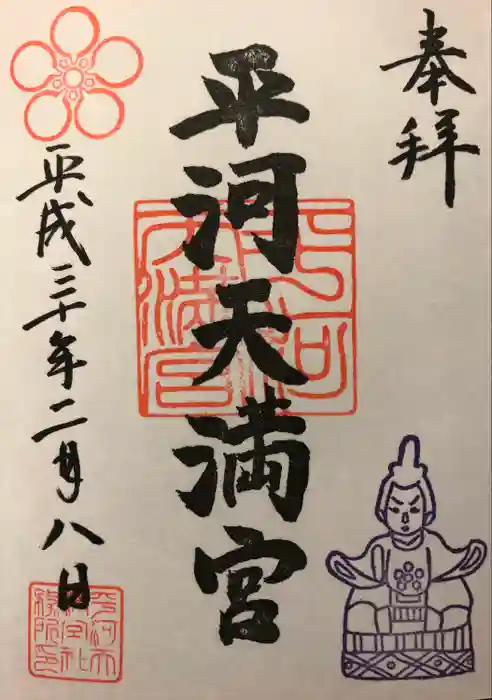 奉拝
平河天満宮
平成三十年二月八日